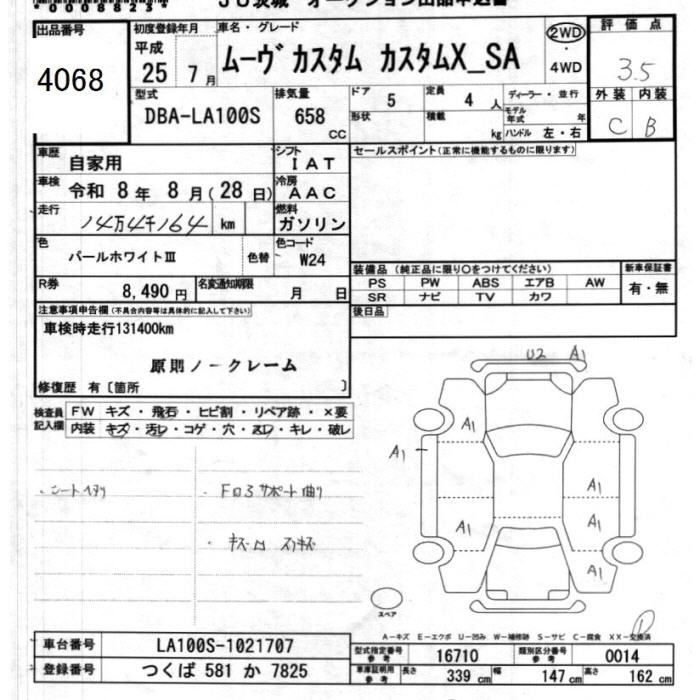 0008823
JU茨城 オークション出品申込書
出品番号
4068
初度登録年月
平成
25年7月
車名・グレード
ムーヴカスタム カスタムX_SA
2WD
・
4WD
評価点
3.5
外装 内装
C B
型式
DBA-LA100S
排気量
658 CC
ドア 5
定員 4 人
ディーラー・並行
形状
積載 kg
モデル年式 年
ハンドル 左・右
車歴 自家用
シフト IAT
セールスポイント(正常に機能するものに限ります)
車検 令和 8年 8月(28日)
冷房 AAC
走行 14万4千164 km
燃料 ガソリン
色 パールホワイトⅢ 色替
色コード W24
R券 8,490円
名変通知期限 月 日
装備品(純正品に限り○をつけてください)
新車保証書
PS PW ABS エアB AW
有・無
SR ナビ TV カワ
後日品
注意事項申告欄(不具合内容等は具体的に記入して下さい)
車検時走行131400km
原則ノークレーム
修復歴 有〔箇所 〕
検査員記入欄
FW キズ・飛石・ヒビ割・リペア跡・×要
内装 キズ・汚レ・コゲ・穴・スレ・キレ・破レ
・シートヘタリ
・Fロアサポート曲り
・キズ・凹 スリキズ
U2 A1
A1
A1
A1
A1
A1
A1
A1
スペア
A-キズ E-エクボ U-凹み W-補修跡 S-サビ C-腐食 XX-交換済
車台番号 LA100S-1021707
登録番号 つくば 581 か 7825
型式指定番号 参考 16710
類別区分番号 参考 0014
車庫証明用 参考 長さ 339 cm 幅 147 cm 高さ 162 cm